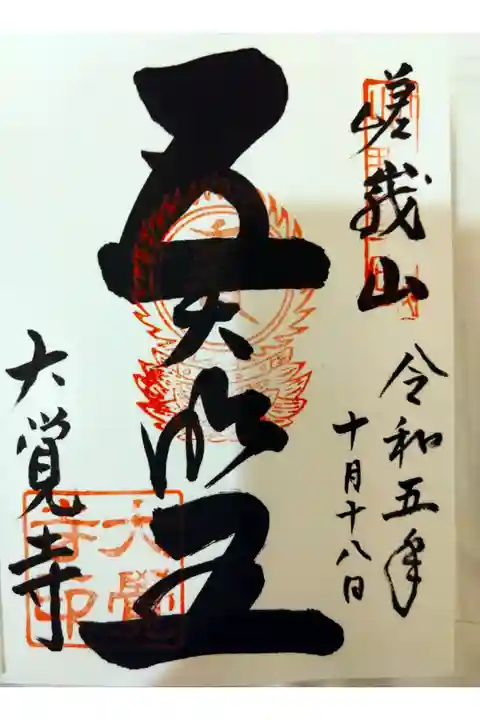 嵯峨山
令和五年
十月十八日
五大明王
大覚寺
大覺寺印